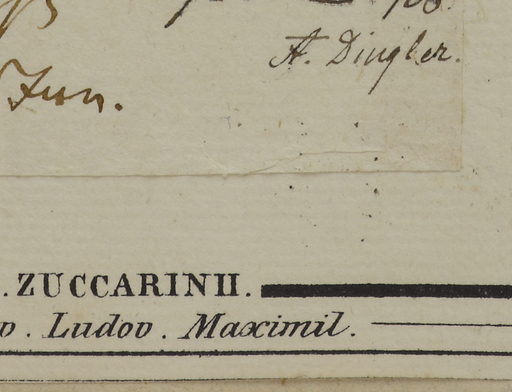 A. Dingler.
Jun.
. ZUCCARINII.
v. Ludov. Maximil.